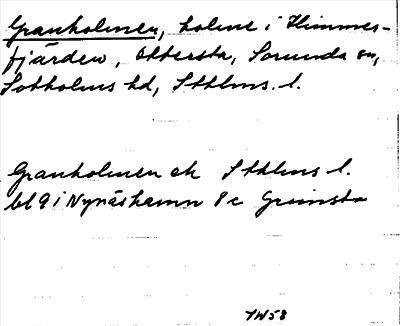 Granholmen, holme i Himmers-
fjärden, Ottersta, Sorunda sn,
Sotholms hd, Sthlms. l.
Granholmen ek Sthlms l.
bl 9 i Nynäshamn 8c Grimsta
IW58